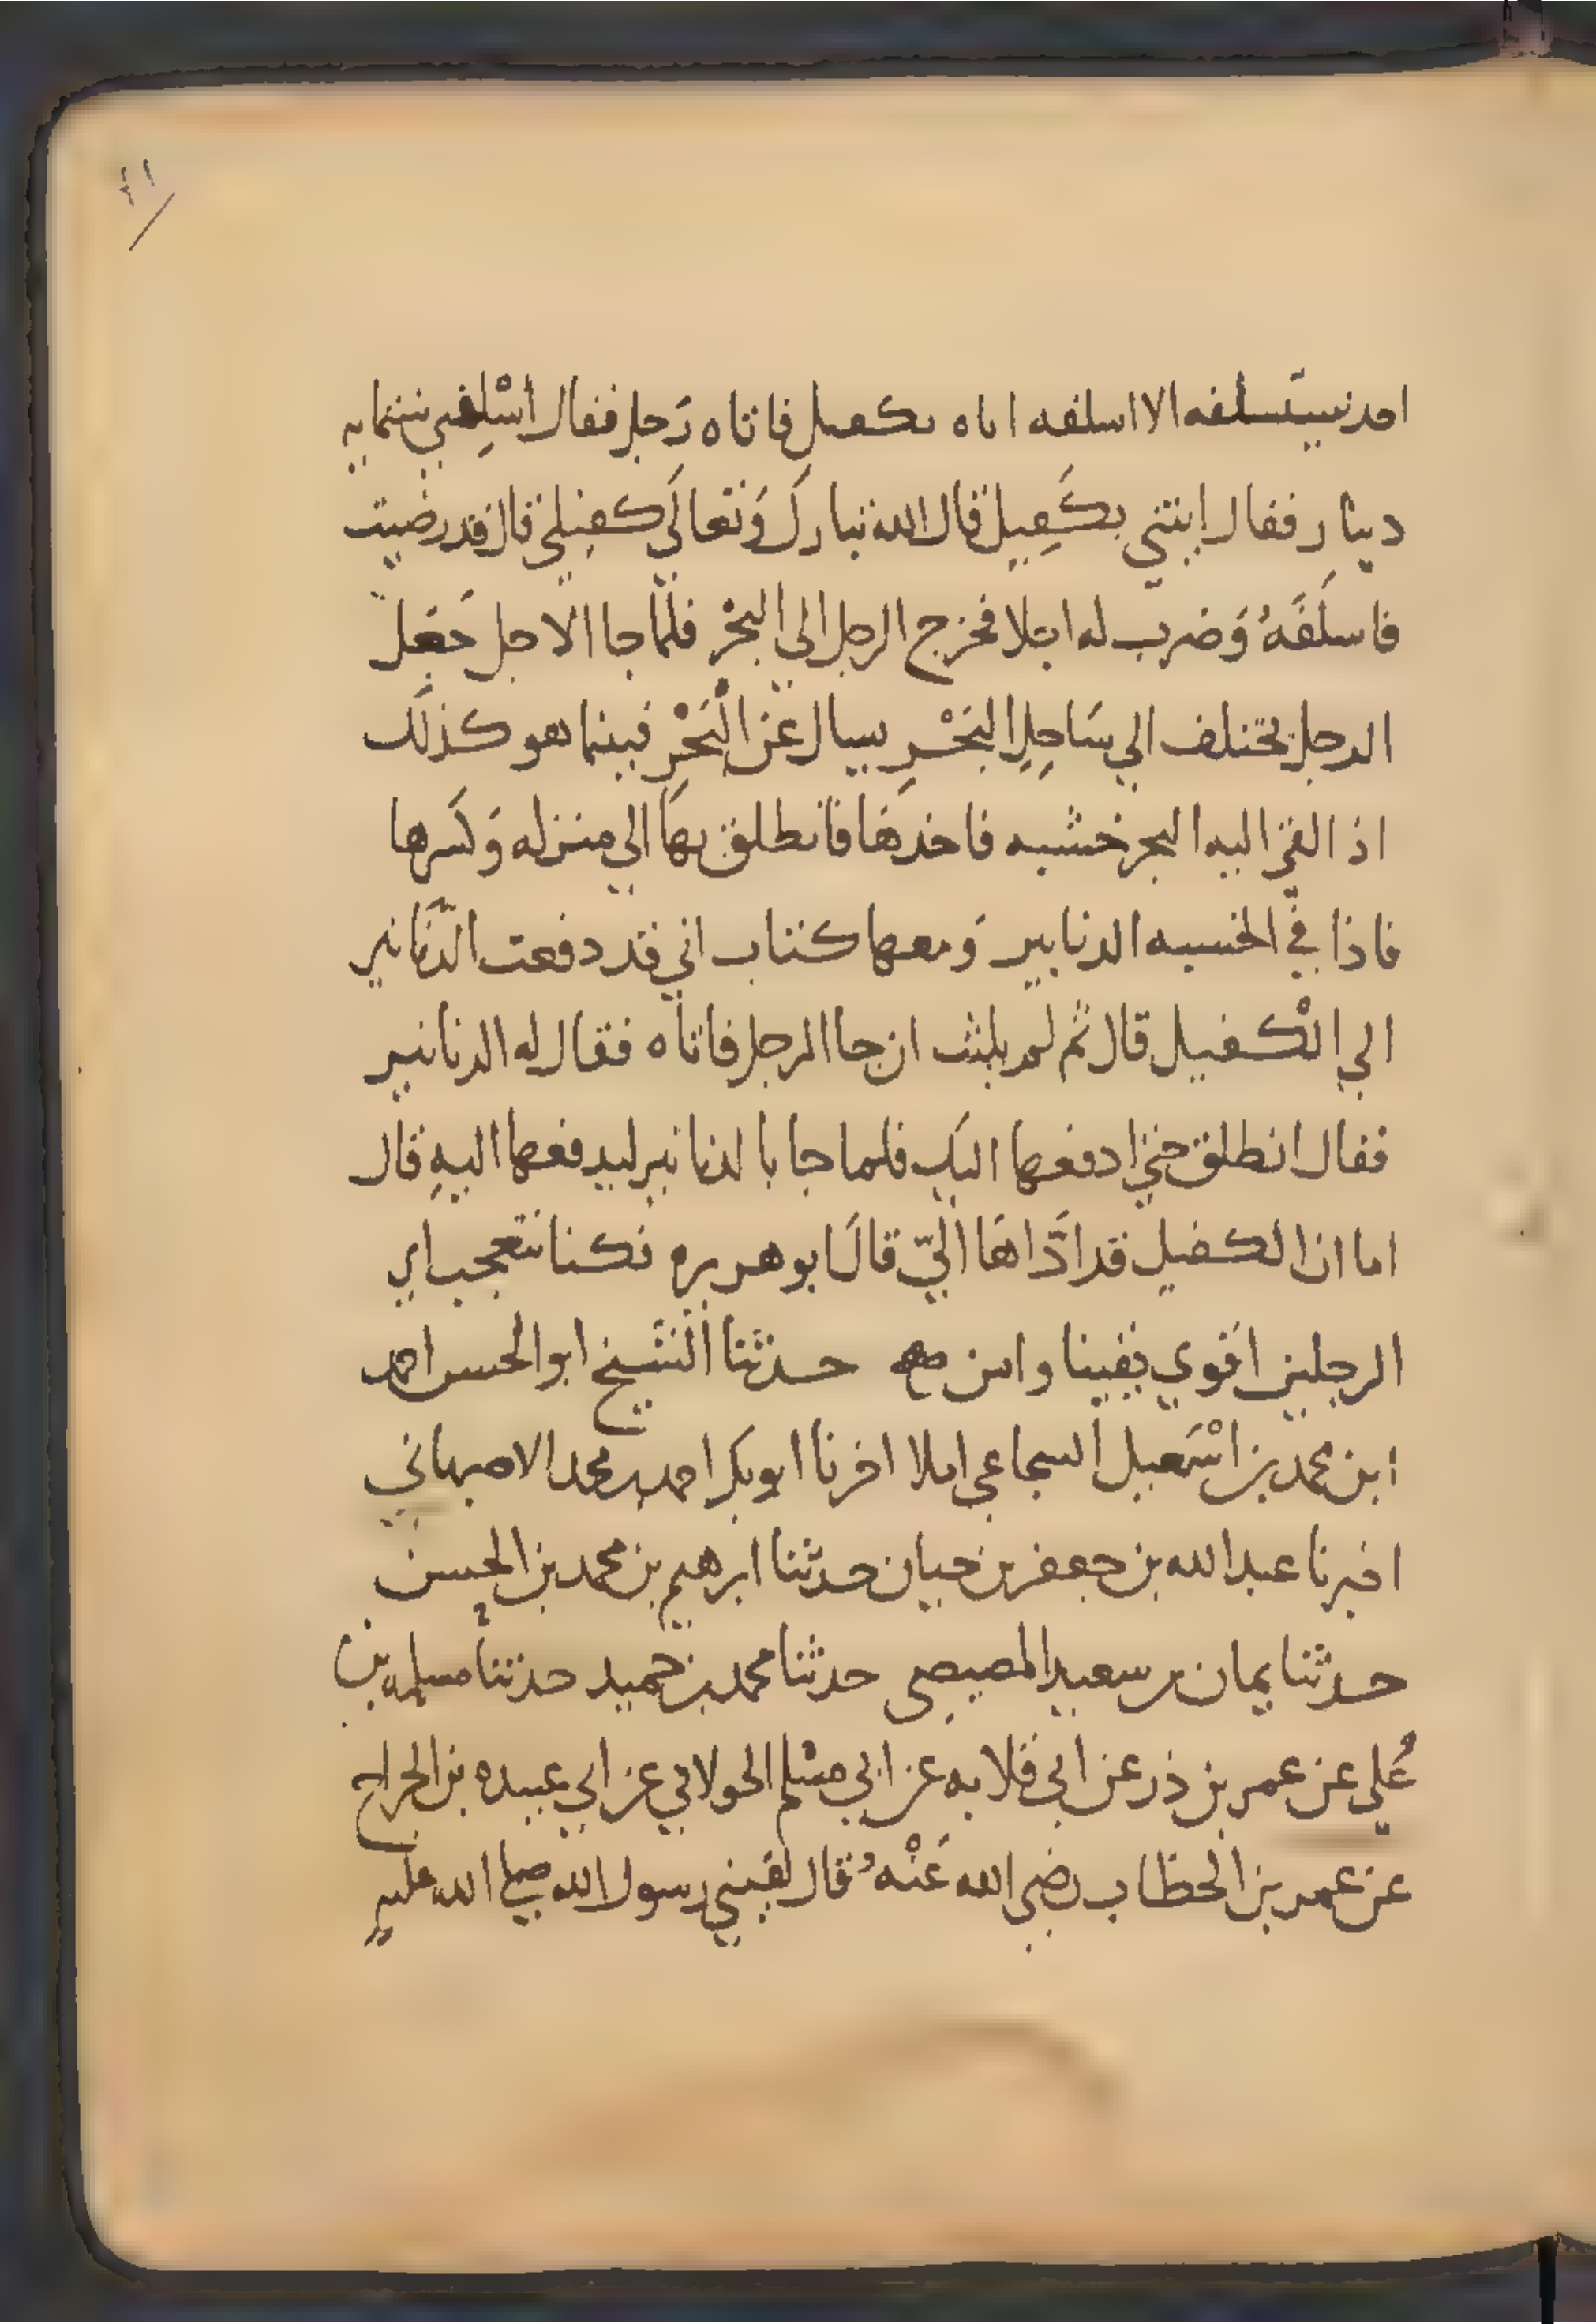 احد نيستسلفه الا اسلفه اياه بكفيل فاتاه رَجل فقال اسْلِفني ستمايه
دينار فقال ايتني بكَفِيل قال الله تبارك وَتعالَي كفيلي قال قد رضيت
فاسلَفَهُ وَضرب له اجلا فخرج الرجل الي البَحْر فلما جا الاجل جَعَل
الرجل يختلف الي سَاحِلِ البَحْرِ يسال عَن البَحْرِ فبينما هو كذلَك
اذ القي اليه البحر خشبه فاخذهَا فانطلق بهَا الي منزله وَكسرها
فاذا في الخشبه الدنانير وَمعها كتاب اني قد دفعت الدّنَانير
الي الْكفيل قال ثم لم يلبث ان جا الرجل فاتاه فقال له الدنانير
فقال انطلق حتي ادفعها اليك فلما جا بالدنانير ليدفعها اليهِ قال
اما ان الكفيل قد ادَّاهَا اليّ قالَ ابو هريره فكنا نتعجب اي
الرجلين اقوي يقينا وامن صح حدثنا الشَّيخ ابو الحسن احمد
ابن محمد بن اسْمَعيل السجاعي املا اخرنا ابو بكر احمد بن محمد الاصبهاني
اخبرنا عبد الله بن جعفر بن حيان حدثنا ابرهيم بن محمد بن الحسن
حدثنا يمان بن سعيد المصيصي حدثنا محمد بن حميد حدثنا مسلمه بن
عُلي عن عمر بن ذر عن ابي قلابه عن ابي مسْلم الخولاني عن ابي عبيده بن الجراح
عن عمر بن الخطاب رضي الله عَنْهُ قال لقيني رسول الله صلي الله عليه